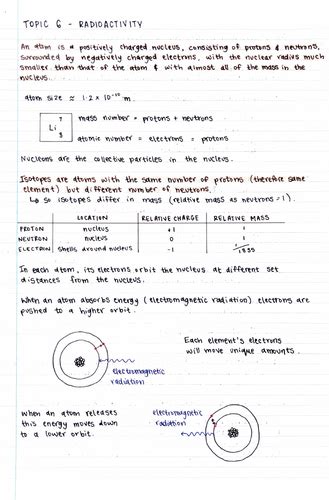 TOPIC 6 - RADIOACTIVITY
An atom is a positively charged nucleus, consisting of protons & neutrons,
surrounded by negatively charged electrons, with the nuclear radius much
smaller than that of the atom & with almost all of the mass in the
nucleus.
atom size ≈ 1.2 x 10⁻¹⁰ m.
7
mass number = protons + neutrons
Li
3
atomic number = electrons = protons
Nucleons are the collective particles in the nucleus.
Isotopes are atoms with the same number of protons (therefore same
element) but different number of neutrons.
↳ so isotopes differ in mass (relative mass as neutrons = 1).
LOCATION RELATIVE CHARGE RELATIVE MASS
PROTON nucleus +1 1
NEUTRON nucleus 0 1
ELECTRON shells around nucleus -1 1/1835
In each atom, its electrons orbit the nucleus at different set
distances from the nucleus.
When an atom absorbs energy (electromagnetic radiation) electrons are
pushed to a higher orbit.
Each element's electrons
will move unique amounts.
electromagnetic
radiation
When an atom releases
this energy moves down
to a lower orbit.
electromagnetic
radiation